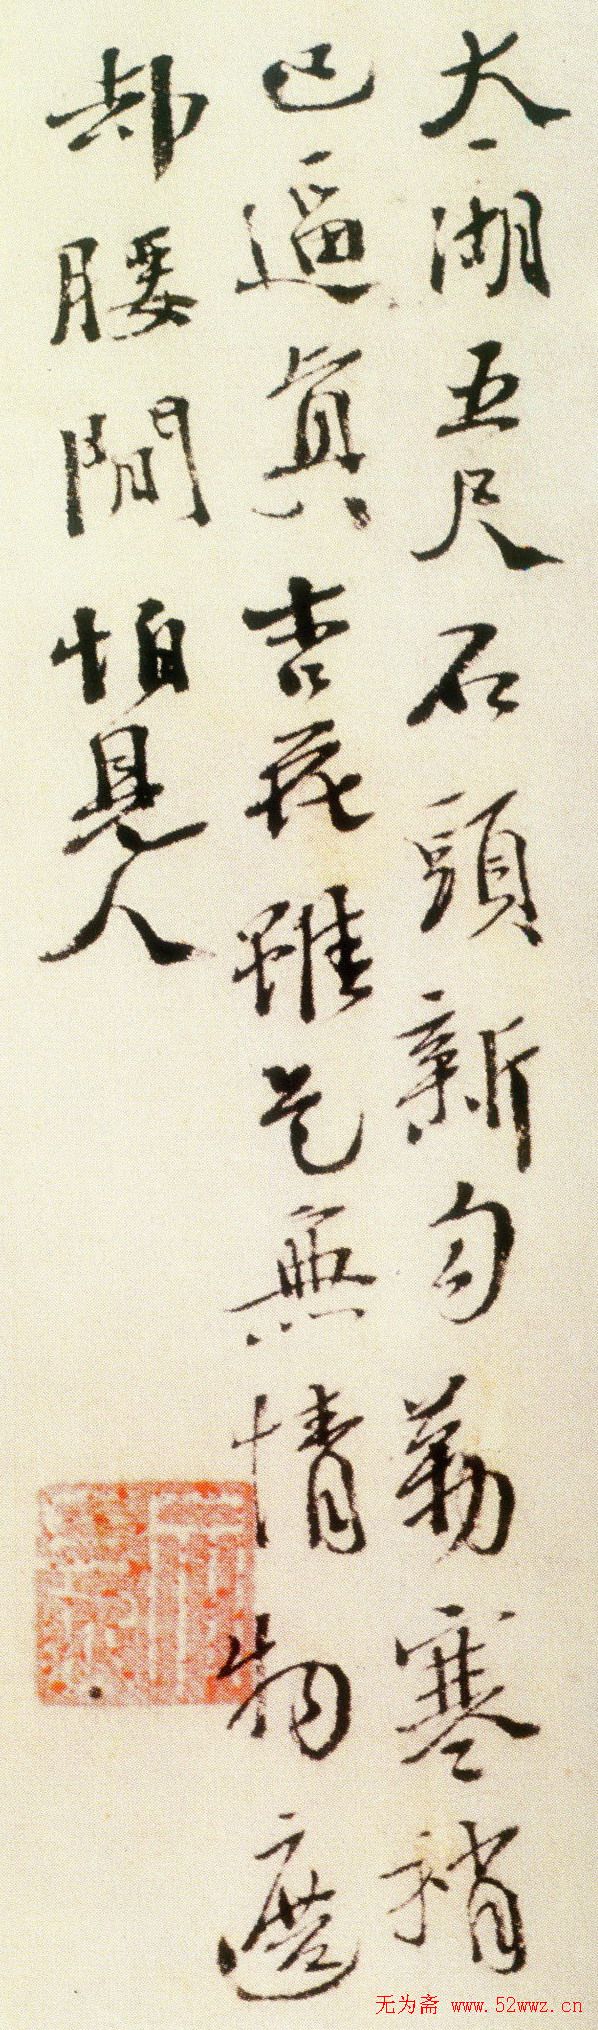 太湖五尺石頭新勾勒寒稍
已逼真吉花雖是無情物遮
却腰間怕見人
无为斋 www.52wwz.cn